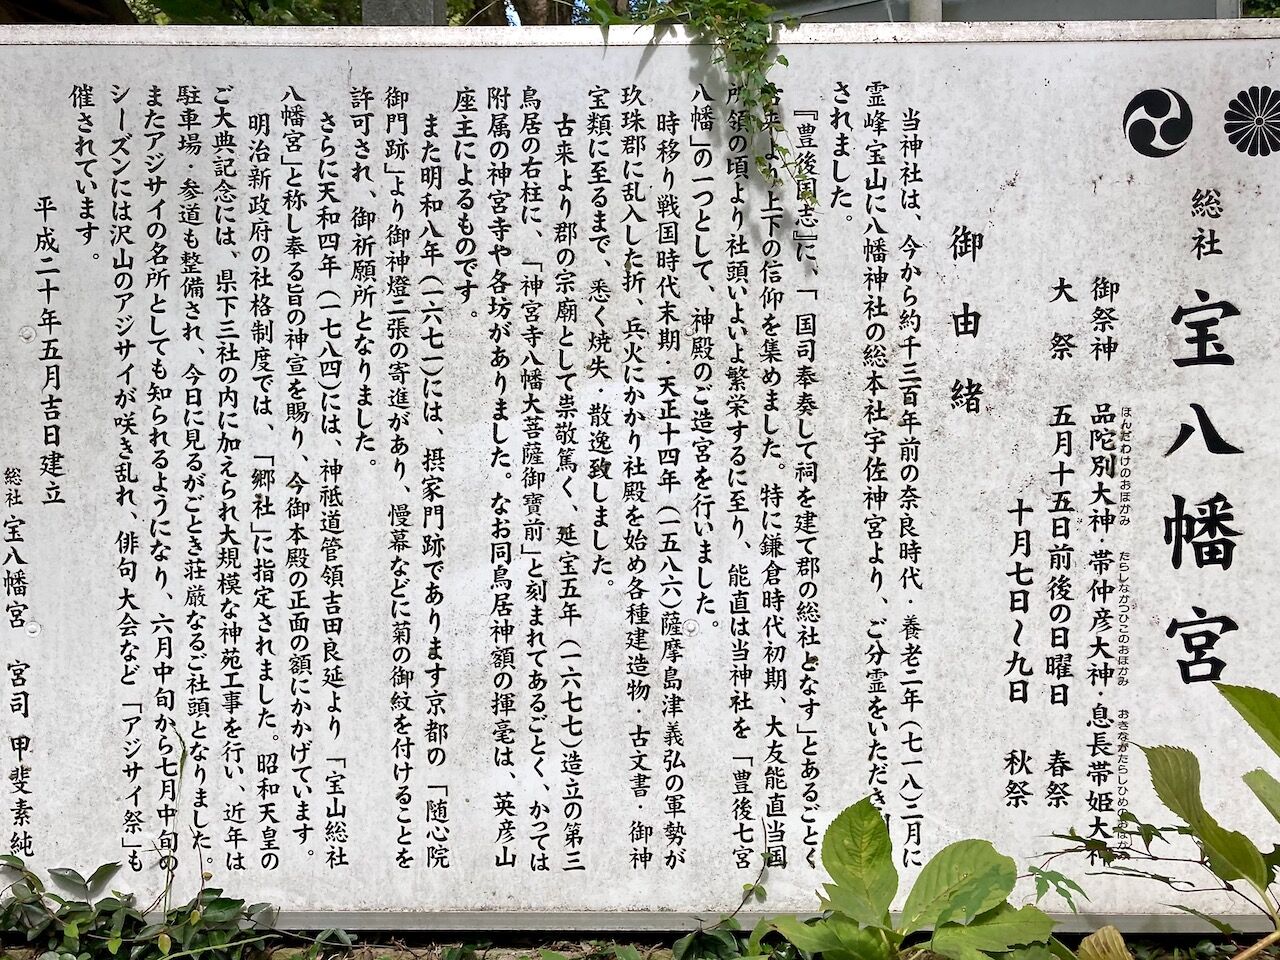 総社 宝八幡宮
御祭神 品陀別大神・帯仲彦大神・息長帯姫大神
ほんだわけのおほかみ たらしなかつひこのおほかみ おきながたらしひめのおほかみ
大祭 五月十五日前後の日曜日 春祭
十月七日〜九日 秋祭
御由緒
当神社は、今から約千三百年前の奈良時代・養老二年(七一八)二月に
霊峰宝山に八幡神社の総本社宇佐神宮より、ご分霊をいただき
されました。
『豊後国志』に、「国司奉奏して祠を建て郡の総社となす」とあるごとく
古来より上下の信仰を集めました。特に鎌倉時代初期、大友能直当国
所領の頃より社頭いよいよ繁栄するに至り、能直は当神社を「豊後七宮
八幡」の一つとして、神殿のご造宮を行いました。
時移り戦国時代末期・天正十四年(一五八六)薩摩島津義弘の軍勢が
玖珠郡に乱入した折、兵火にかかり社殿を始め各種建造物・古文書・御神
宝類に至るまで、悉く焼失・散逸致しました。
古来より郡の宗廟として崇敬篤く、延宝五年(一六七七)造立の第三
鳥居の右柱に、「神宮寺八幡大菩薩御寶前」と刻まれてあるごとく、かつては
附属の神宮寺や各坊がありました。なお同鳥居神額の揮毫は、英彦山
座主によるものです。
また明和八年(一六七一)には、摂家門跡であります京都の「随心院
御門跡」より御神燈二張の寄進があり、慢幕などに菊の御紋を付けることを
許可され、御祈願所となりました。
さらに天和四年(一七八四)には、神祗道管領吉田良延より「宝山総社
八幡宮」と称し奉る旨の神宣を賜り、今御本殿の正面の額にかかげています。
明治新政府の社格制度では、「郷社」に指定されました。昭和天皇の
ご大典記念には、県下三社の内に加えられ大規模な神苑工事を行い、近年は
駐車場・参道も整備され、今日に見るがごとき荘厳なるご社頭となりました。
またアジサイの名所としても知られるようになり、六月中旬から七月中旬の
シーズンには沢山のアジサイが咲き乱れ、俳句大会など「アジサイ祭」も
催されています。
平成二十年五月吉日建立
総社 宝八幡宮 宮司 甲斐素純